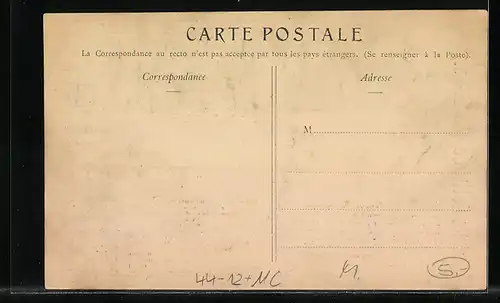 CARTE POSTALE
La Correspondance au recto n'est pas acceptée par tous les pays étrangers. (Se renseigner à la Poste).
Correspondance
Adresse
M
44-12+MC
5,-